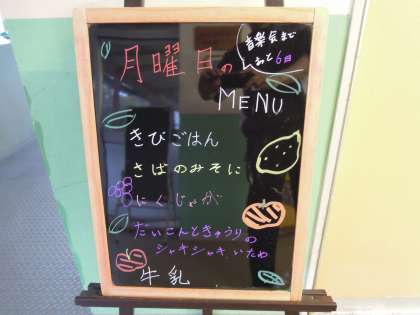 月曜日の
音楽会まで
あと6日
MENU
きびごはん
さばのみそに
にくじゃが
だいこんときゅうりの
シャキシャキいため
牛乳